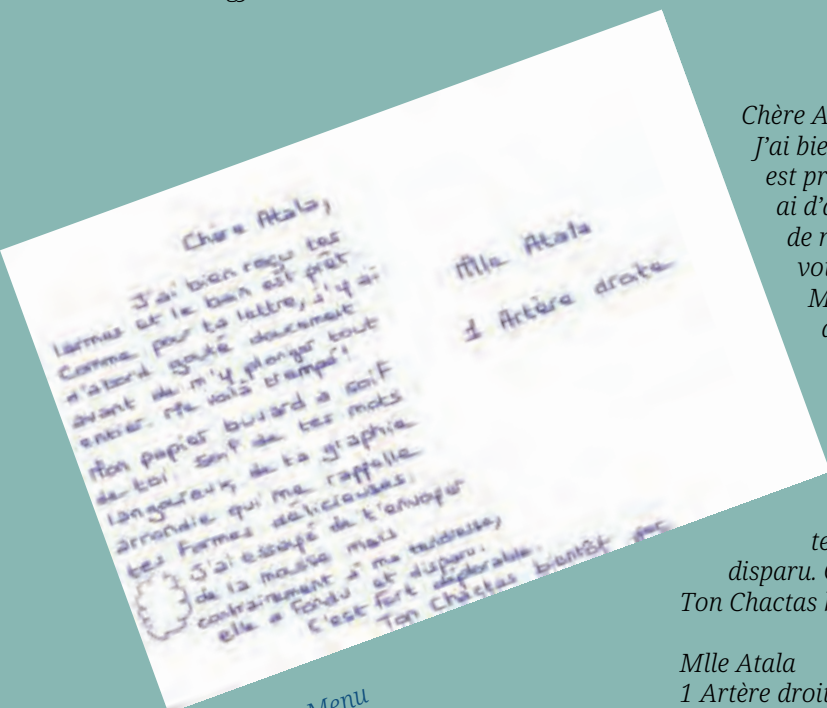 Chère Atala,
J'ai bien reçu tes
larmes et le bain est prêt
Comme pour ta lettre, j'y ai
d'abord goûté doucement
avant de m'y plonger tout
entier. Me voilà trempé!
Mon papier buvard a soif
de toi. Soif de tes mots
langoureux, de ta graphie
arrondie qui me rappelle
tes formes délicieuses.
J'ai essayé de t'envoyer
de la mousse mais
contrairement à ma tendresse,
elle a fondu et disparu.
C'est fort déplorable.
Ton Chactas bientôt
Mlle Atala
1 Artère droite
Menu
Chère A
J'ai bie
est pr
ai d'
de
vo
M
te
disparu.
Ton Chactas
Mlle Atala
1 Artère droi